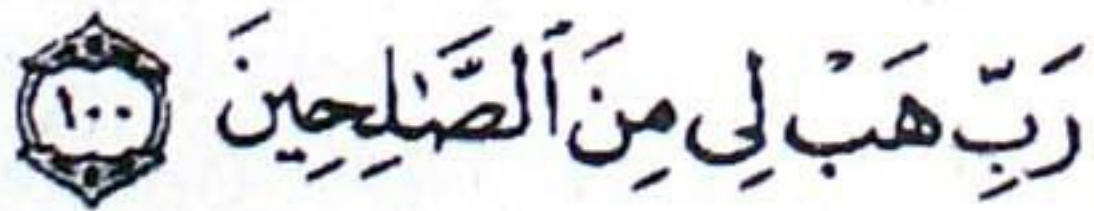 رَبِّ هَبْ لِى مِنَ ٱلصَّٰلِحِينَ ١٠٠